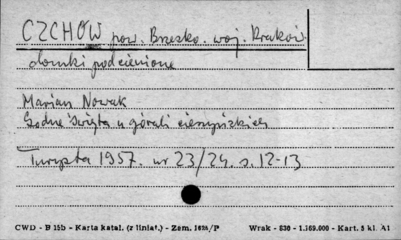 CZCHÓW pow. Brzesko. woj. Kraków
domki podcienione
Marian Nowak
Godne Święta u górali cieszyńskich
Turysta 1957. nr 23/24. s. 12-13
CWD - B 15b - Karta katal. (z liniat.) - Zam. 1624/P Wrak - 836 - 1.389.000 - Kart. 5 kl. A1